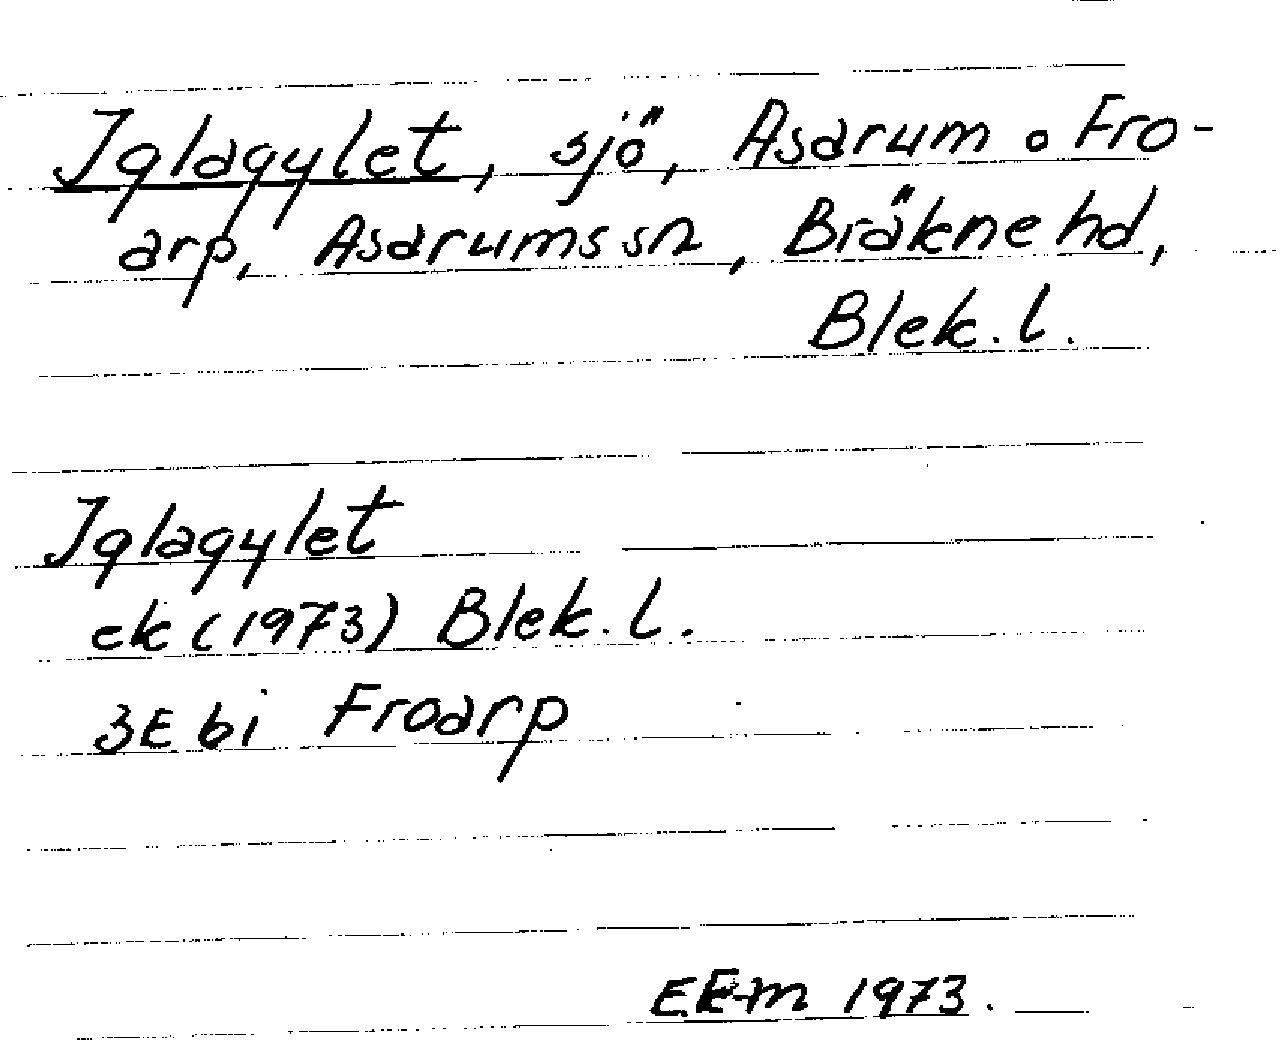 Iglagylet, sjö, Asarum o Fro-
arp, Asarums sn, Bräkne hd,
Blek. l.
Iglagylet
ek (1973) Blek. l.
3E bi Froarp
E.E-m 1973.